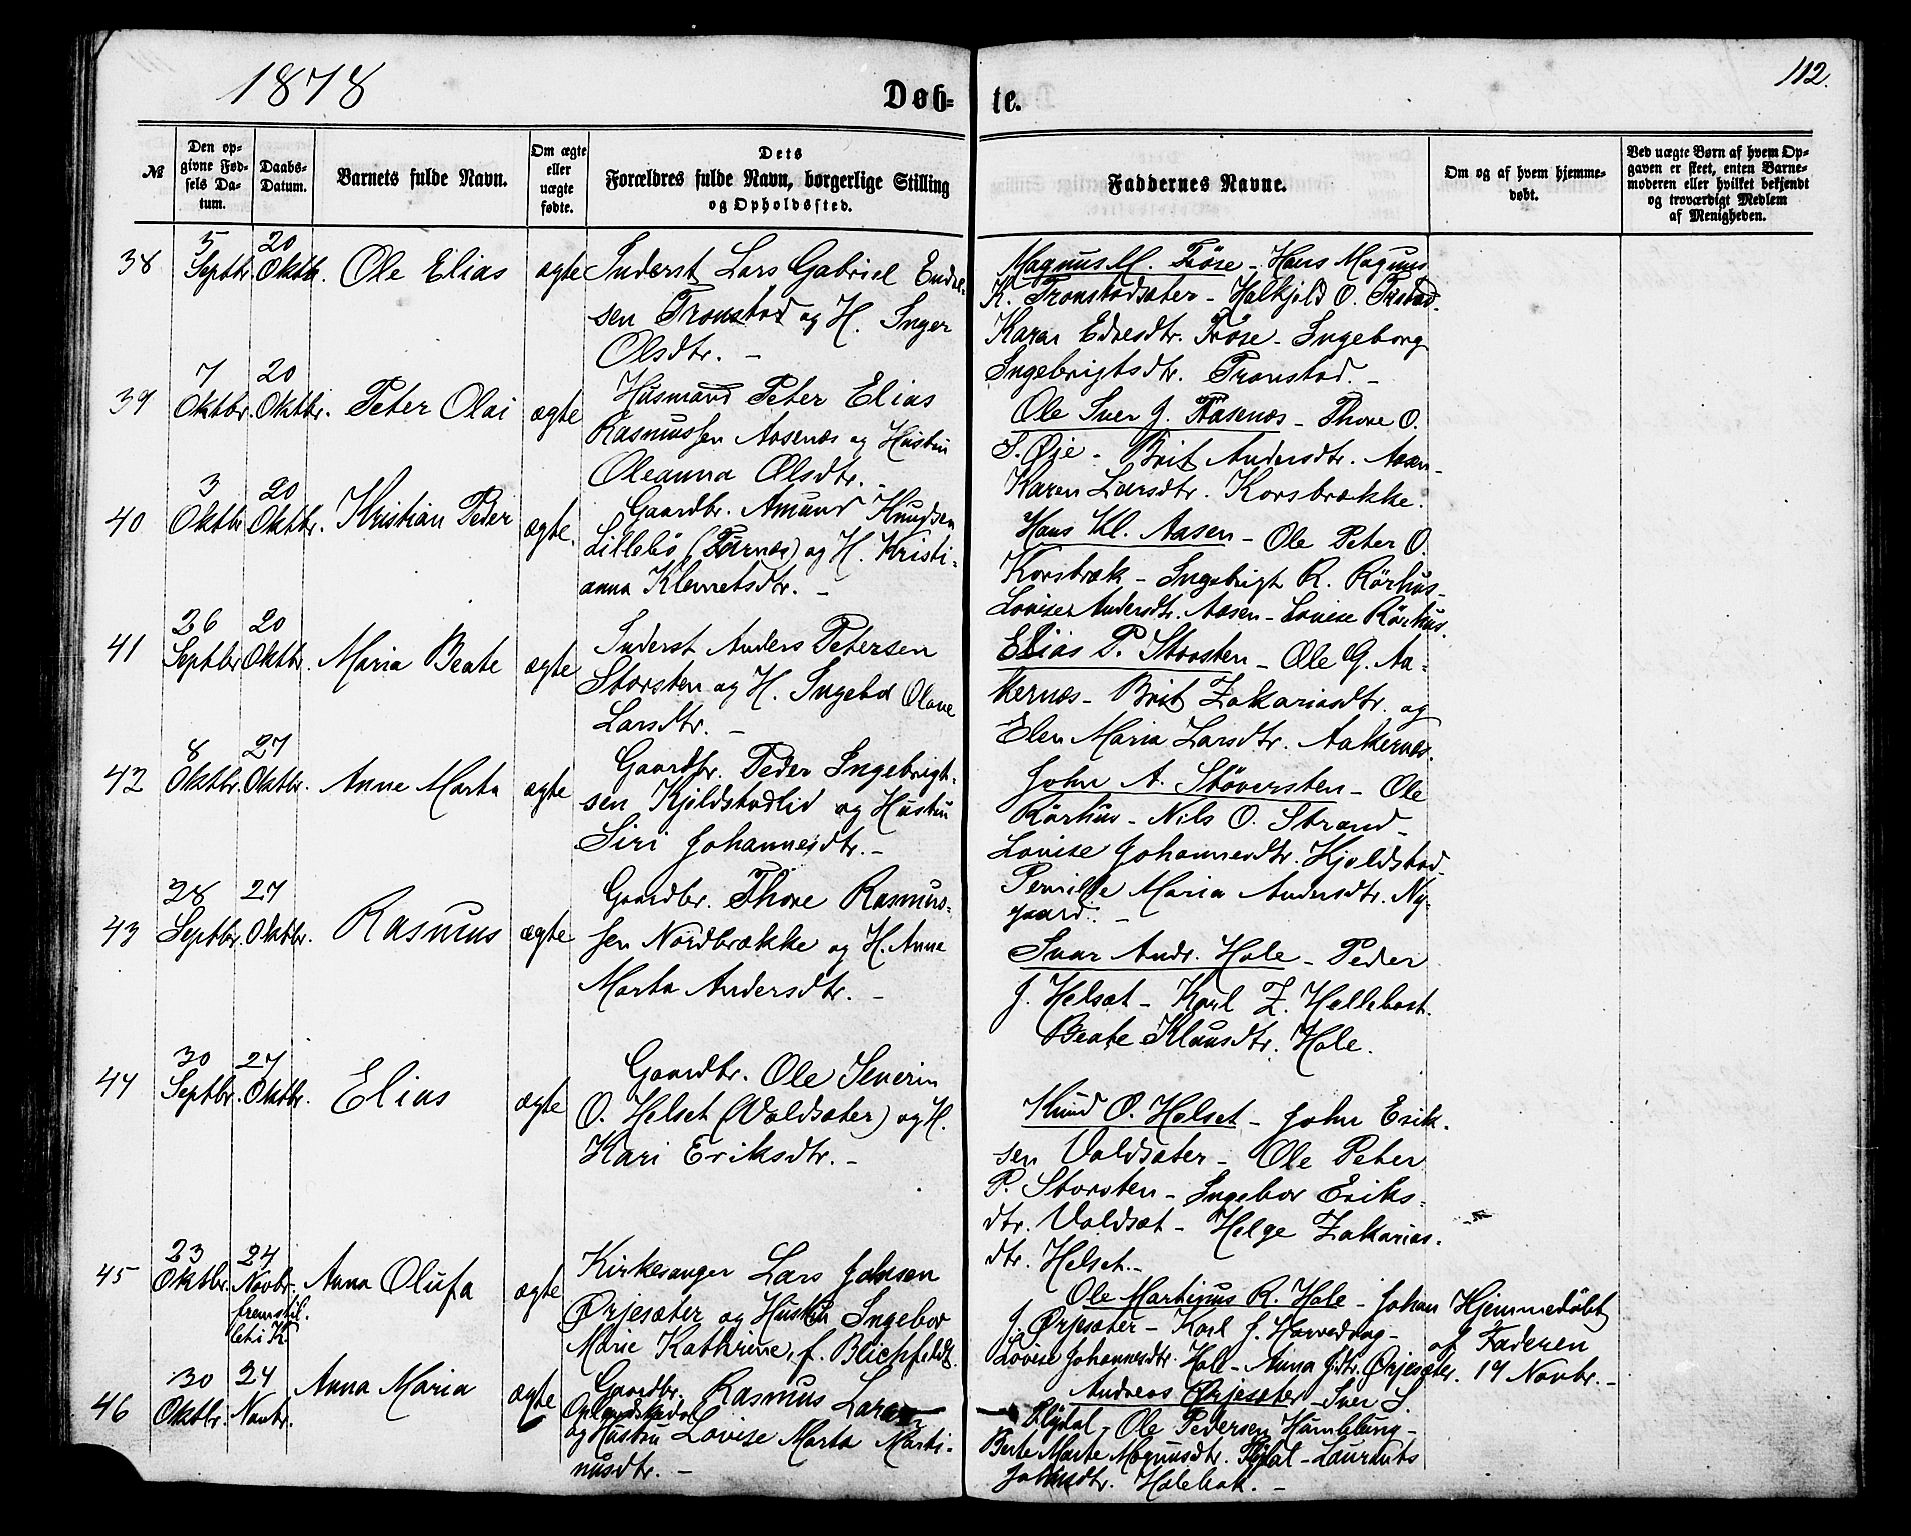 1878
Døb- te.
112.
№
Den opgivne Fødsels Datum.
Daabs-Datum.
Barnets fulde Navn.
Om ægte eller uægte fødte.
Dets Forældres fulde Navn, borgerlige Stilling og Opholdssted.
Faddernes Navne.
Om og af hvem hjemmedøbt.
Ved uægte Børn af hvem Opgaven er skeet, enten Barnemoderen eller hvilket bekjendt og troværdigt Medlem af Menigheden.
38 5 Septbr. 20 Oktbr. Ole Elias ægte
Inderst Lars Gabriel Endre-
sen Tronstad og H. Inger
Olsdtr. -
Magnus M. Frøse - Hans Magnus
K. Tronstadsæter - Halkjeld O.
Karen Edresdtr. Frøse - Ingeborg
Ingebrigtsdtr. Tronstad. -
39 7 Oktbr. 20 Oktbr. Peter Olai ægte
Husmand Peter Elias
Rasmussen Aasenæs og Hustru
Oleanna Olsdtr. -
Ole Iver J. Aasenæs - Thore O.
S. Øje - Brit Andersdtr. Aasen -
Karen Larsdtr. Korsbrække.
40 3 Oktbr. 20 Oktbr. Kristian Peder ægte.
Gaardbr. Amund Knudsen
Lillebø (Furnæs) og H. Kristi-
anna Klemetsdtr. -
Hans Kl. Aasen - Ole Peter O.
Korsbræk - Ingebrigt R. Rørhus -
Lovise Andersdtr. Aasen - Lovise Rørhus.
41 26 Septbr. 20 Oktbr. Maria Beate ægte
Inderst Anders Petersen
Storsten og H. Ingebor Olave
Larsdtr. -
Elias P. Storsten - Ole G. Aa-
kernæs - Brit Zakariasdtr. og
Elen Maria Larsdtr. Aakernæs.
42 8 Oktbr. 27 Oktbr. Anne Marta ægte
Gaardbr. Peder Ingebrigt-
sen Kjeldstadlid og Hustru
Siri Johannesdtr. -
John A. Støversten - Ole
Rørhus - Nils O. Strand -
Lovise Johannesdtr. Kjeldstad -
Pernille Maria Andersdtr. Ny-
gaard. -
43 28 Septbr. 27 Oktbr. Rasmus ægte
Gaardbr. Thore Rasmus-
sen Nordbrække og H. Anne
Marta Andersdtr. -
Ivar Andr. Hole - Peder
J. Helsæt - Karl Z. Hellebost.
Beate Klausdtr. Hole.
44 30 Septbr. 27 Oktbr. Elias ægte
Gaardbr. Ole Severin
O. Helset (Valdsæter) og H.
Kari Eriksdtr. -
Knud O. Helset - John Erik-
sen Valdsæter - Ole Peter
P. Storsten - Ingebor Eriks-
dtr. Valdsæt - Helge Zakarias-
dtr. Helset. -
45 23 Oktbr. 24 Novbr. fremstil. let i K. Anna Olufa ægte
Kirkesanger Lars Johnsen
Ørjesæter og Hustru Ingebor
Marie Kathrine, f. Blichfeldt.
Ole Martinus R. Hole - Johan
J. Ørjesæter - Karl J.
Lovise Johannesdtr. Hole - Anna Jdtr. Ørjesæter.
Hjemmedøbt
af Faderen
19 Novbr. -
46 30 Oktbr. 24 Novbr. Anna Maria ægte
Gaardbr. Rasmus Larsen
og Hustru Lovise Marta Marti-
nusdtr. -
Andreas Ørjesæter - Iver S.
Flydal - Ole Pedersen
Berte Marte Magnusdtr. Flydal -
Holebak. -